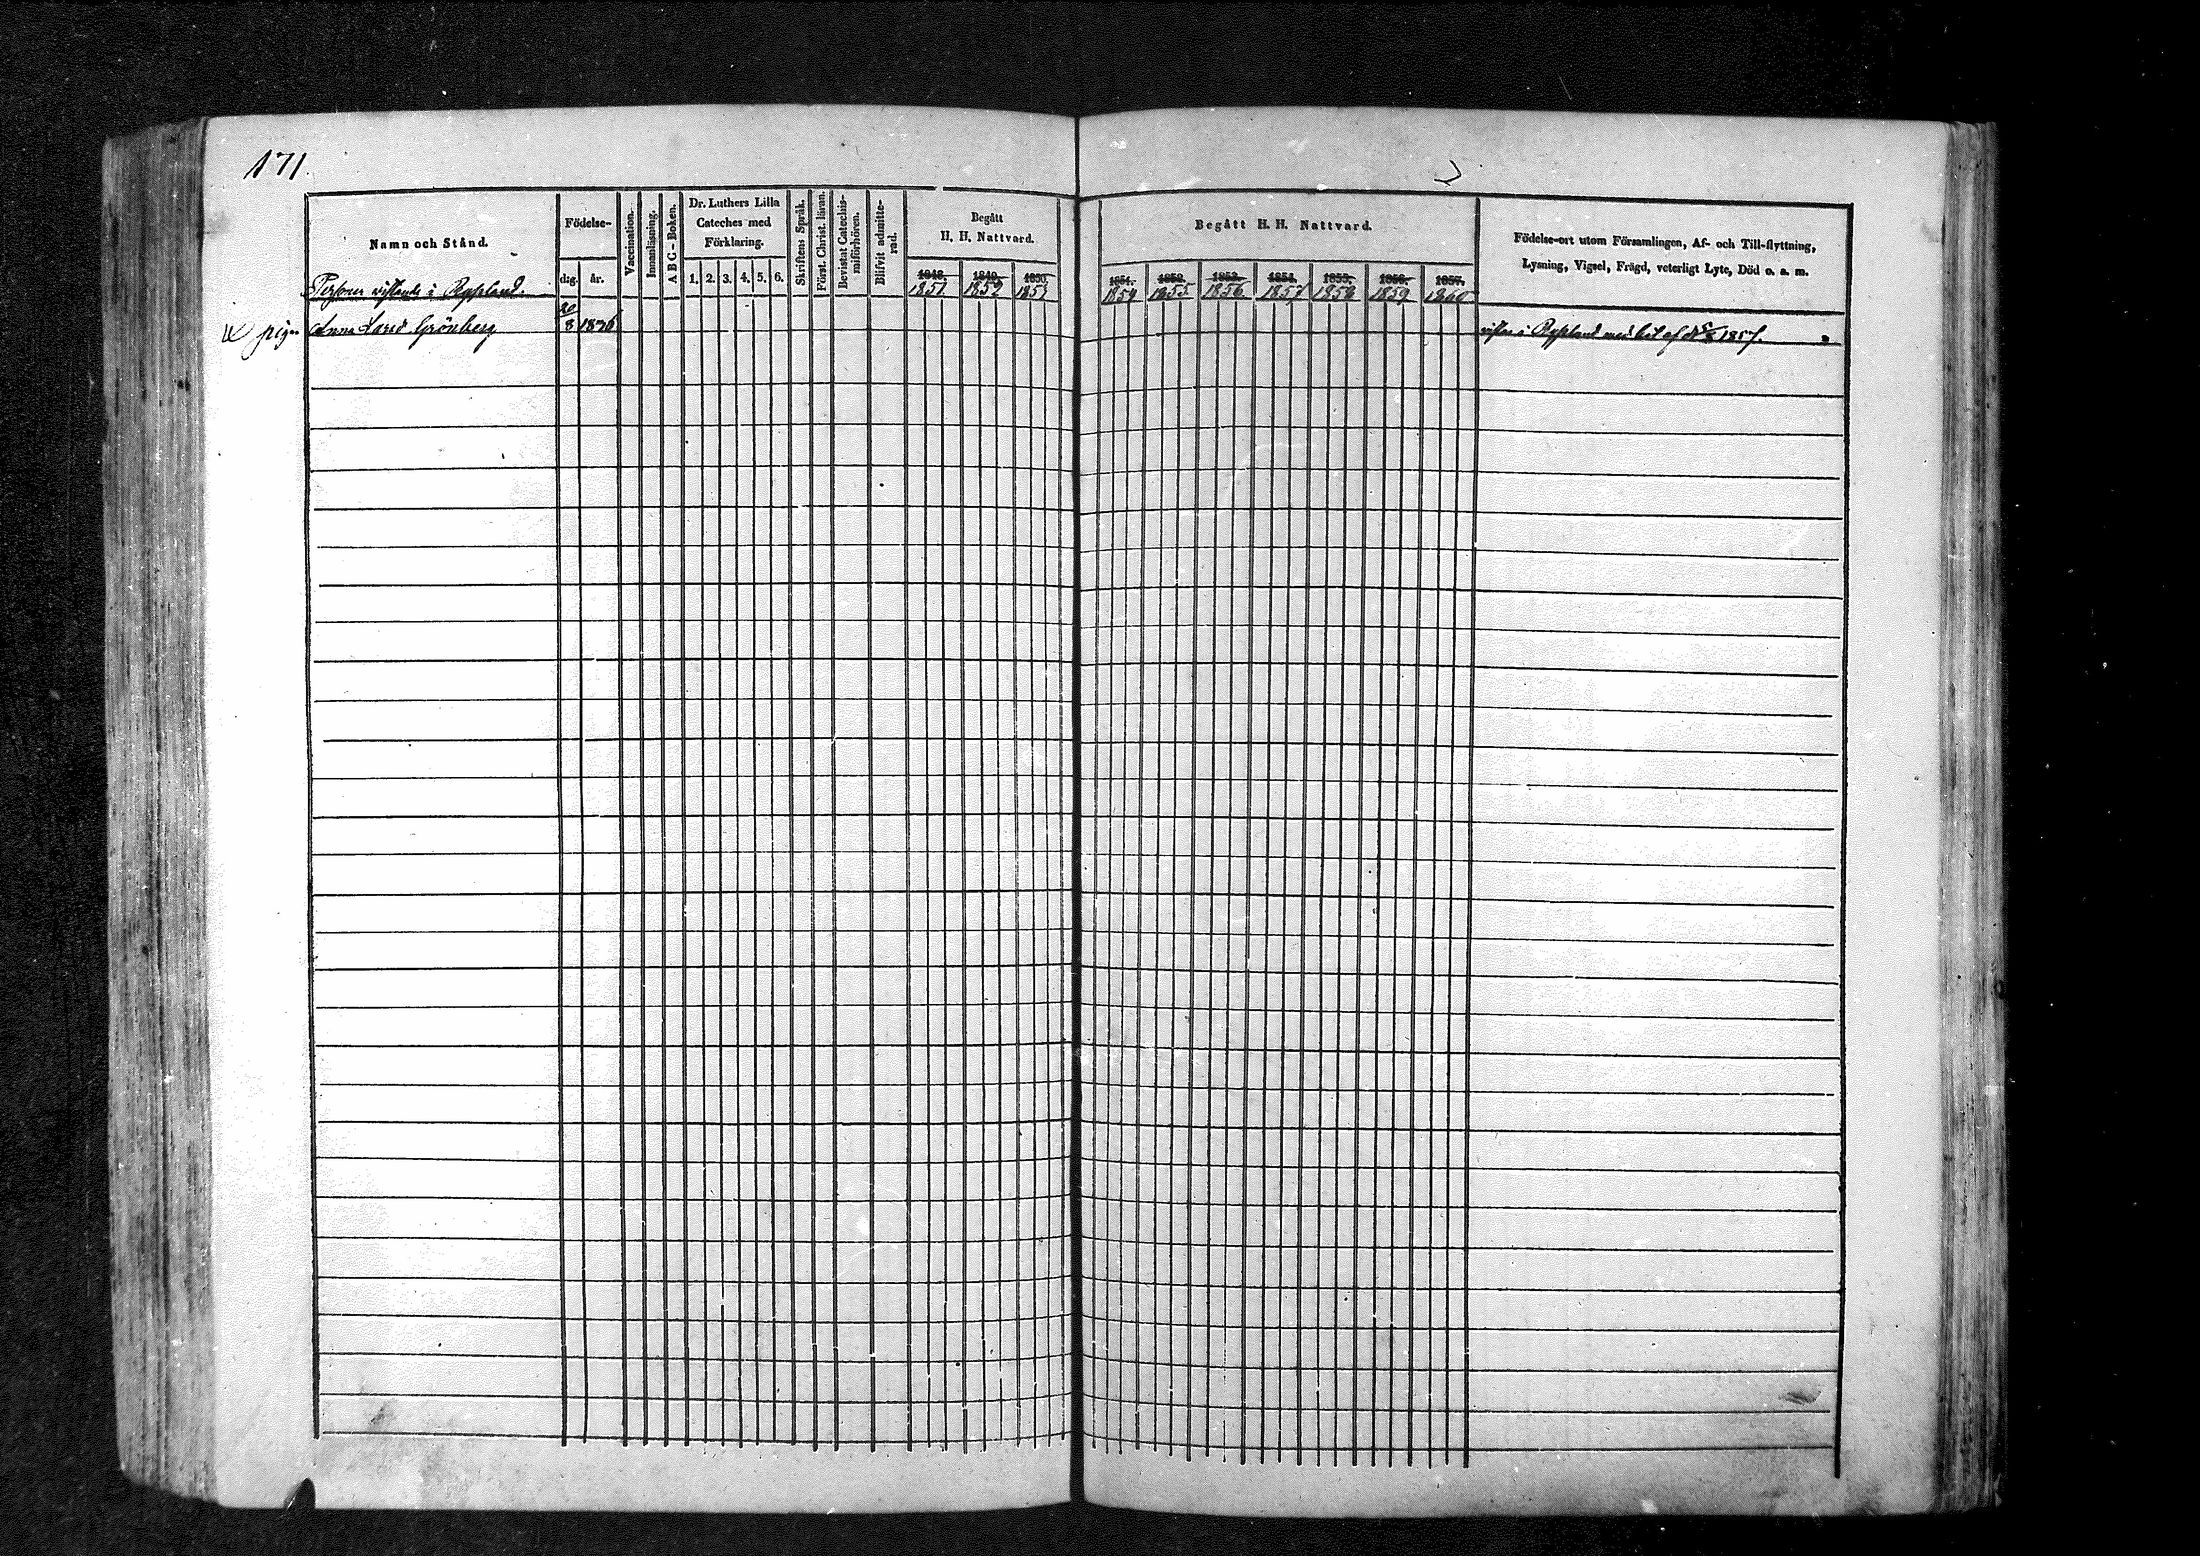 171
Namn och Stånd.
Födelse-
dig. år.
Vaccination.
Innanläsning.
A B C - Boken.
Dr. Luthers Lilla
Cateches med
Förklaring.
1. 2. 3. 4. 5. 6.
Skriftens Språk.
Först. Christ. läran.
Bevistat Catechis-
miförhören.
Blifvit admitte-
rad.
Begått
H. H. Nattvard.
1848. 1849. 1850.
1851 1852 1853
Begått H. H. Nattvard.
1851. 1852. 1853. 1854. 1855. 1856. 1857.
1854 1855 1856 1857 1858 1859 1860
Födelse-ort utom Församlingen, Af- och Till-flyttning,
Lysning, Vigsel, Frägd, veterligt Lyte, Död o. s. m.
Personer vistande i Ryssland.
pigan Anna Grönberg 8 1836
vistas i Ryssland med bet af 1857.